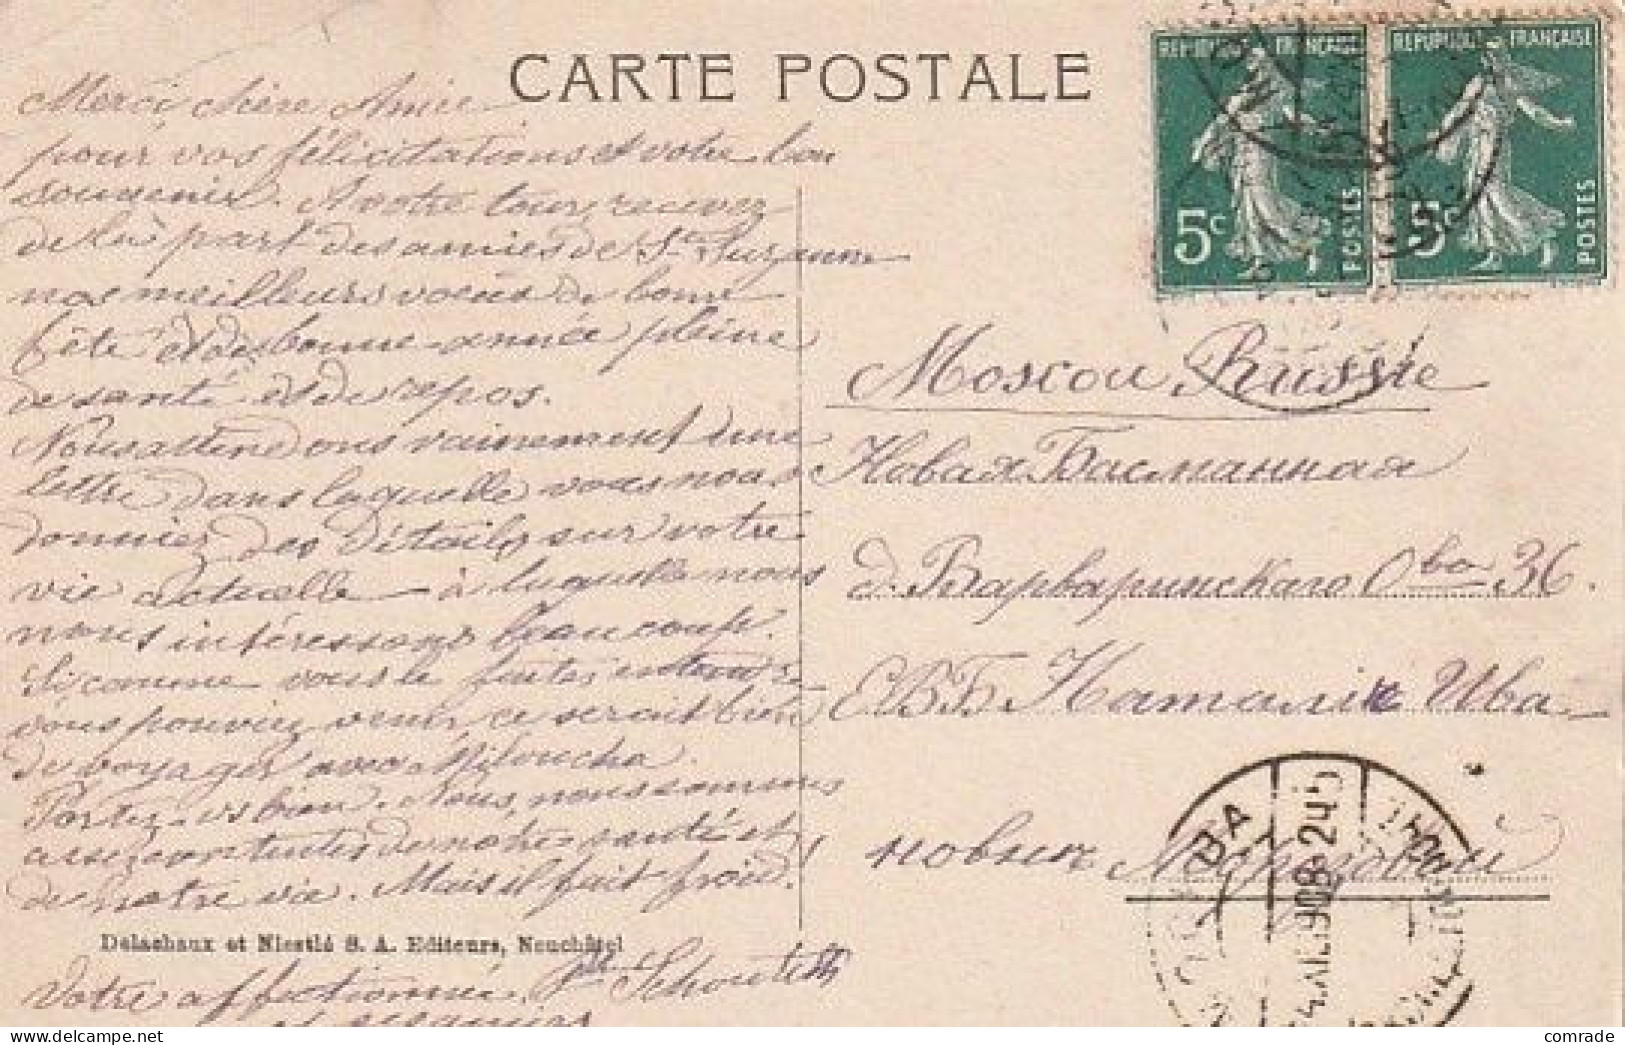 CARTE POSTALE
REPUBLIQUE FRANÇAISE
5c POSTES
REPUBLIQUE FRANÇAISE
5c POSTES
Merci Amie
pour vos félicitations et votre bon
souvenir. A votre tour, recevez
de la part des amies de Ste Suzanne
nos meilleurs voeux de bonne
fête et de bonne année pleine
de santé et de repos.
Nous attendons vainement une
lettre dans laquelle vous nous
donniez des détails sur votre
vie actuelle – à laquelle nous
nous intéressons beaucoup.
Si comme vous le faites
vous pouviez venir, ce serait bien
de voyager avec Miloucha.
Portez-vs bien. Nous, nous sommes
assez contentes de notre santé et
de notre vie. Mais il fait froid!
Delachaux et Niestlé S. A. Editeurs, Neuchâtel
Votre affectionnée
Moscou Russie
Новая Басманная
д. Варваринскаго Oва 36.
ЕВБ Наталіи Ива-
новнѣ
МОСКВА
908
comrade